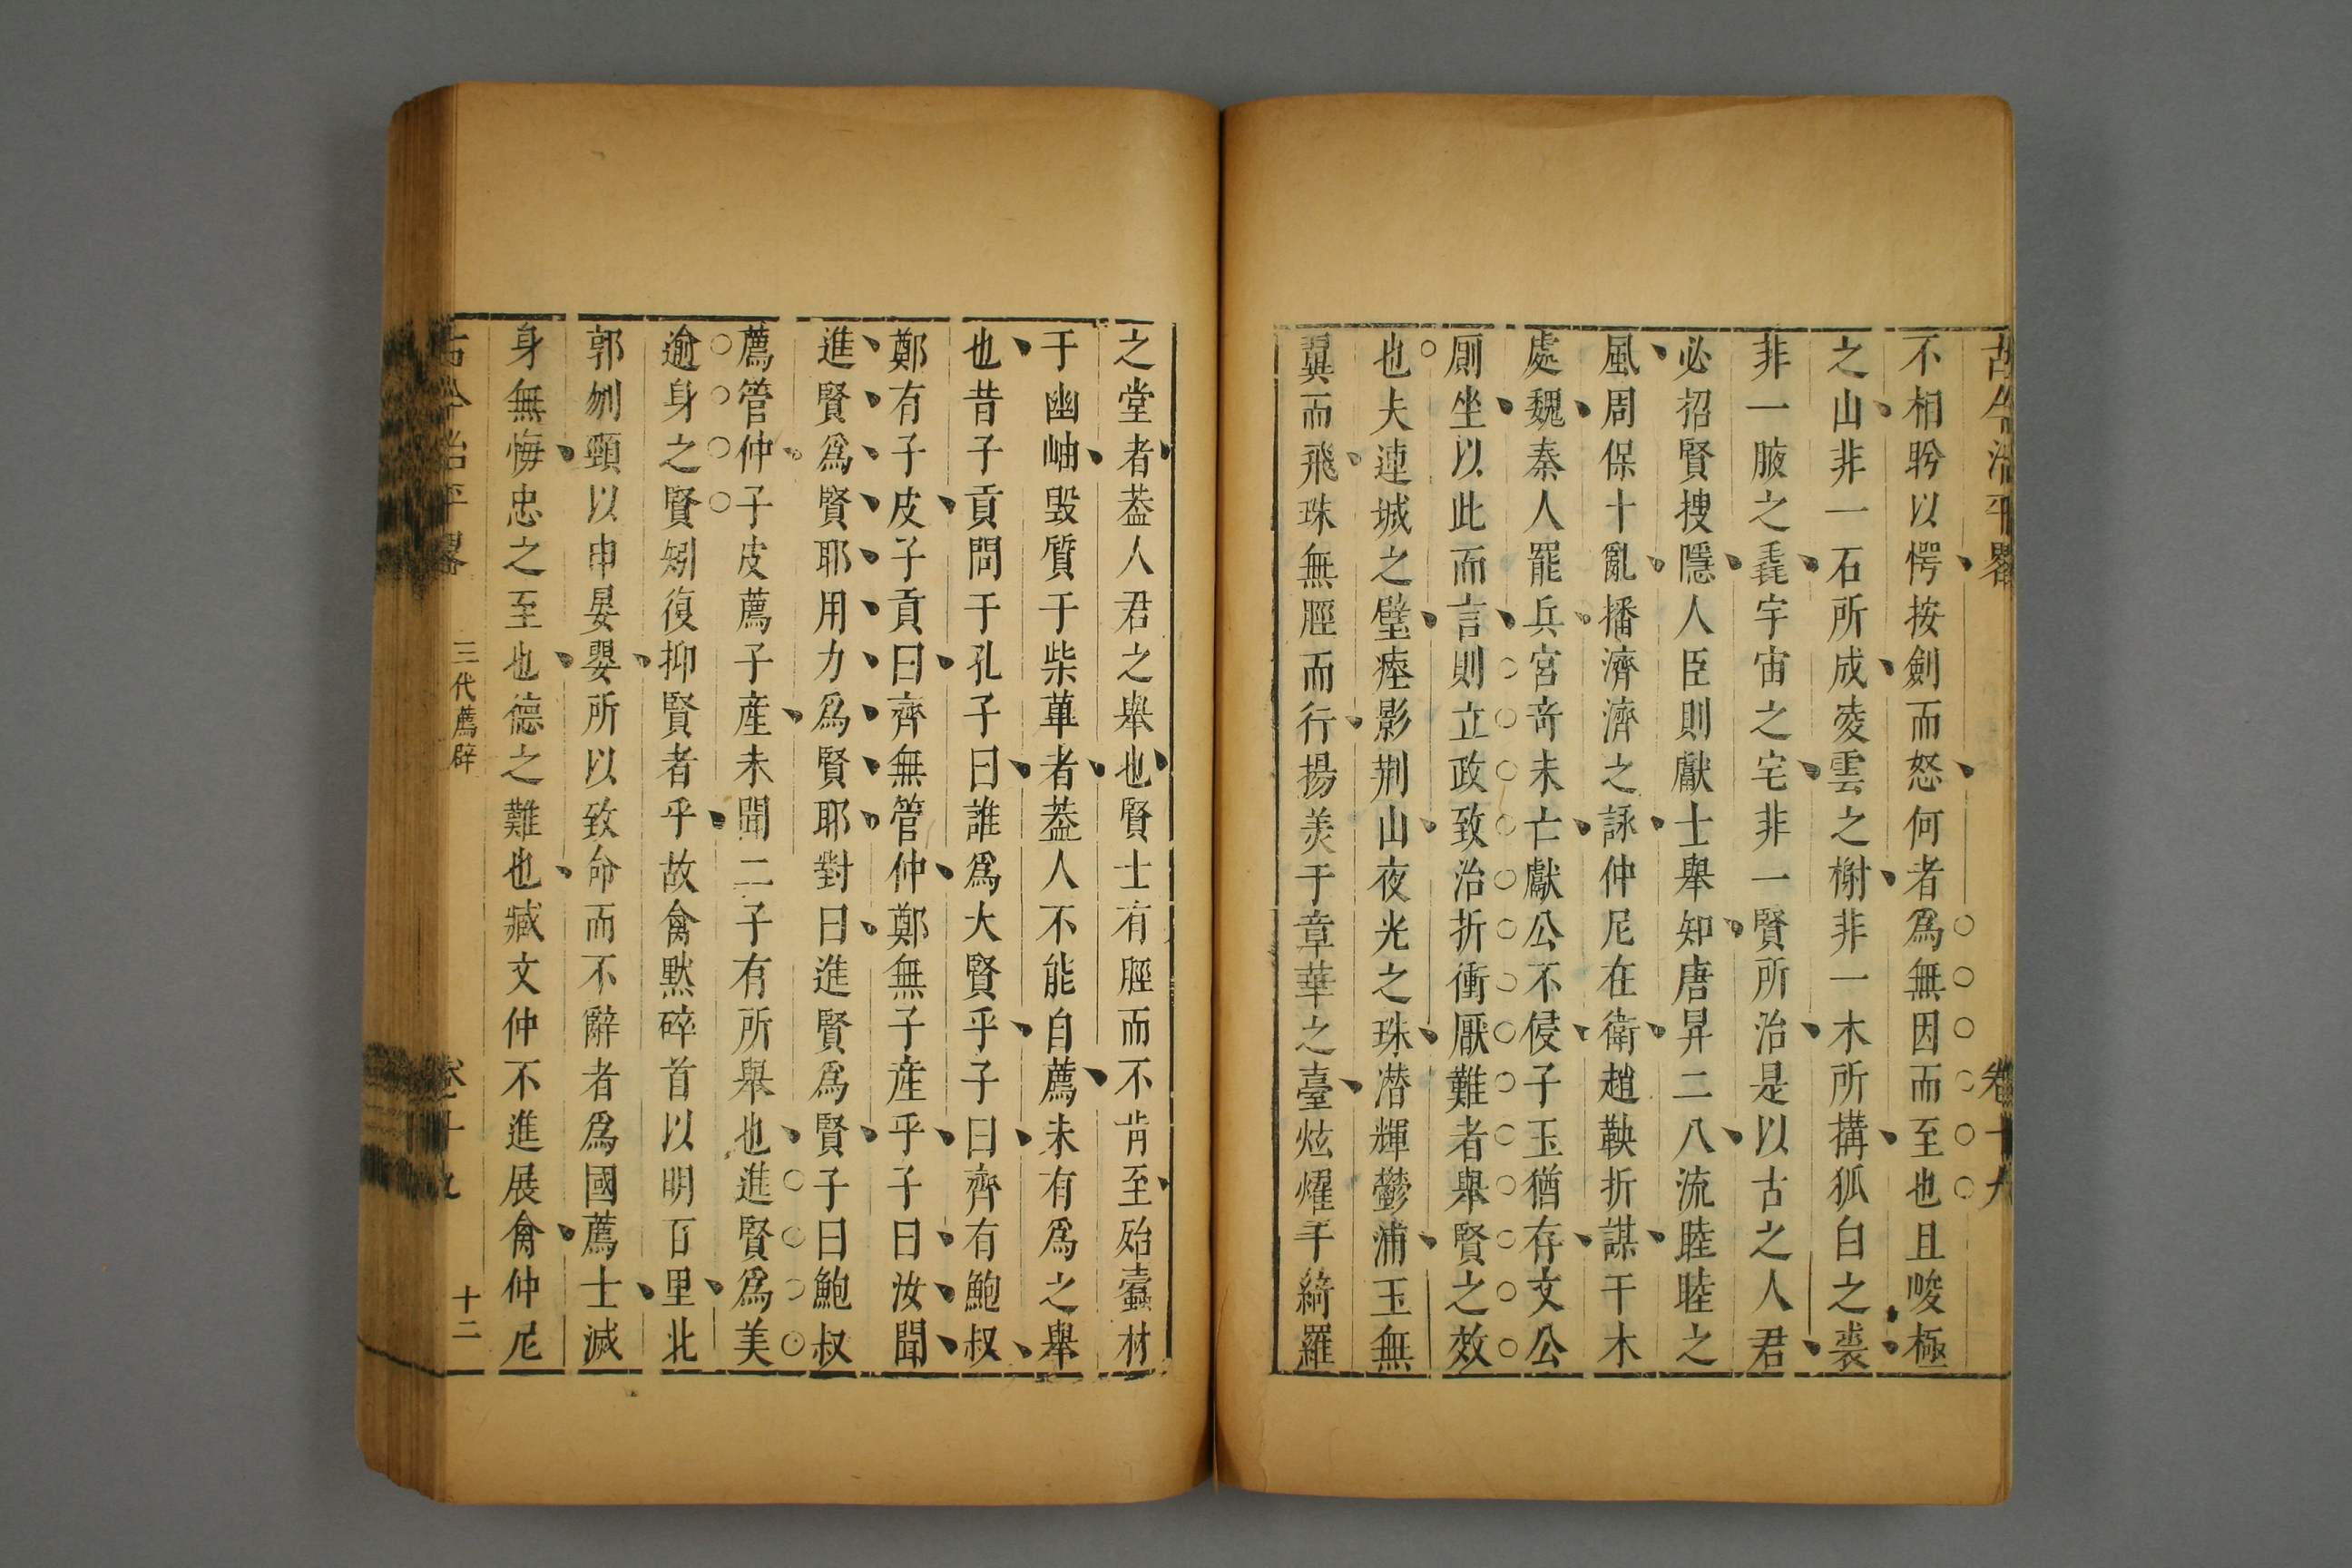 古今治平畧 卷十九
不相眄以愕按劍而怒何者爲無因而至也且唆極
之山非一石所成凌雲之榭非一木所搆狐白之裘
非一腋之毳宇宙之宅非一賢所治是以古之人君
必招賢搜隱人臣則獻士舉知唐昇二八流睦睦之
風周保十亂播濟濟之詠仲尼在衛趙鞅折謀干木
處魏秦人罷兵宮竒未亡獻公不侵子玉猶存文公
厠坐以此而言則立政致治折衝厭難者舉賢之效
也夫連城之璧瘞影荆山夜光之珠潜輝鬱浦玉無
翼而飛珠無脛而行揚羙于章華之臺炫燿乎綺羅
之堂者葢人君之舉也賢士有脛而不肯至殆蠹材
于幽岫毁質于柴蓽者葢人不能自薦未有爲之舉
也昔子貢問于孔子曰誰爲大賢乎子曰齊有鮑叔
鄭有子皮子貢曰齊無管仲鄭無子産乎子曰汝聞
進賢爲賢耶用力爲賢耶對曰進賢爲賢子曰鮑叔
薦管仲子皮薦子産未聞二子有所舉也進賢爲美
逾身之賢矧復抑賢者乎故禽黙碎首以明百里北
郭刎頸以申晏嬰所以致命而不辭者爲國薦士滅
身無悔忠之至也德之難也臧文仲不進展禽仲尼
古今治平畧 三代薦辟 卷十九 十二